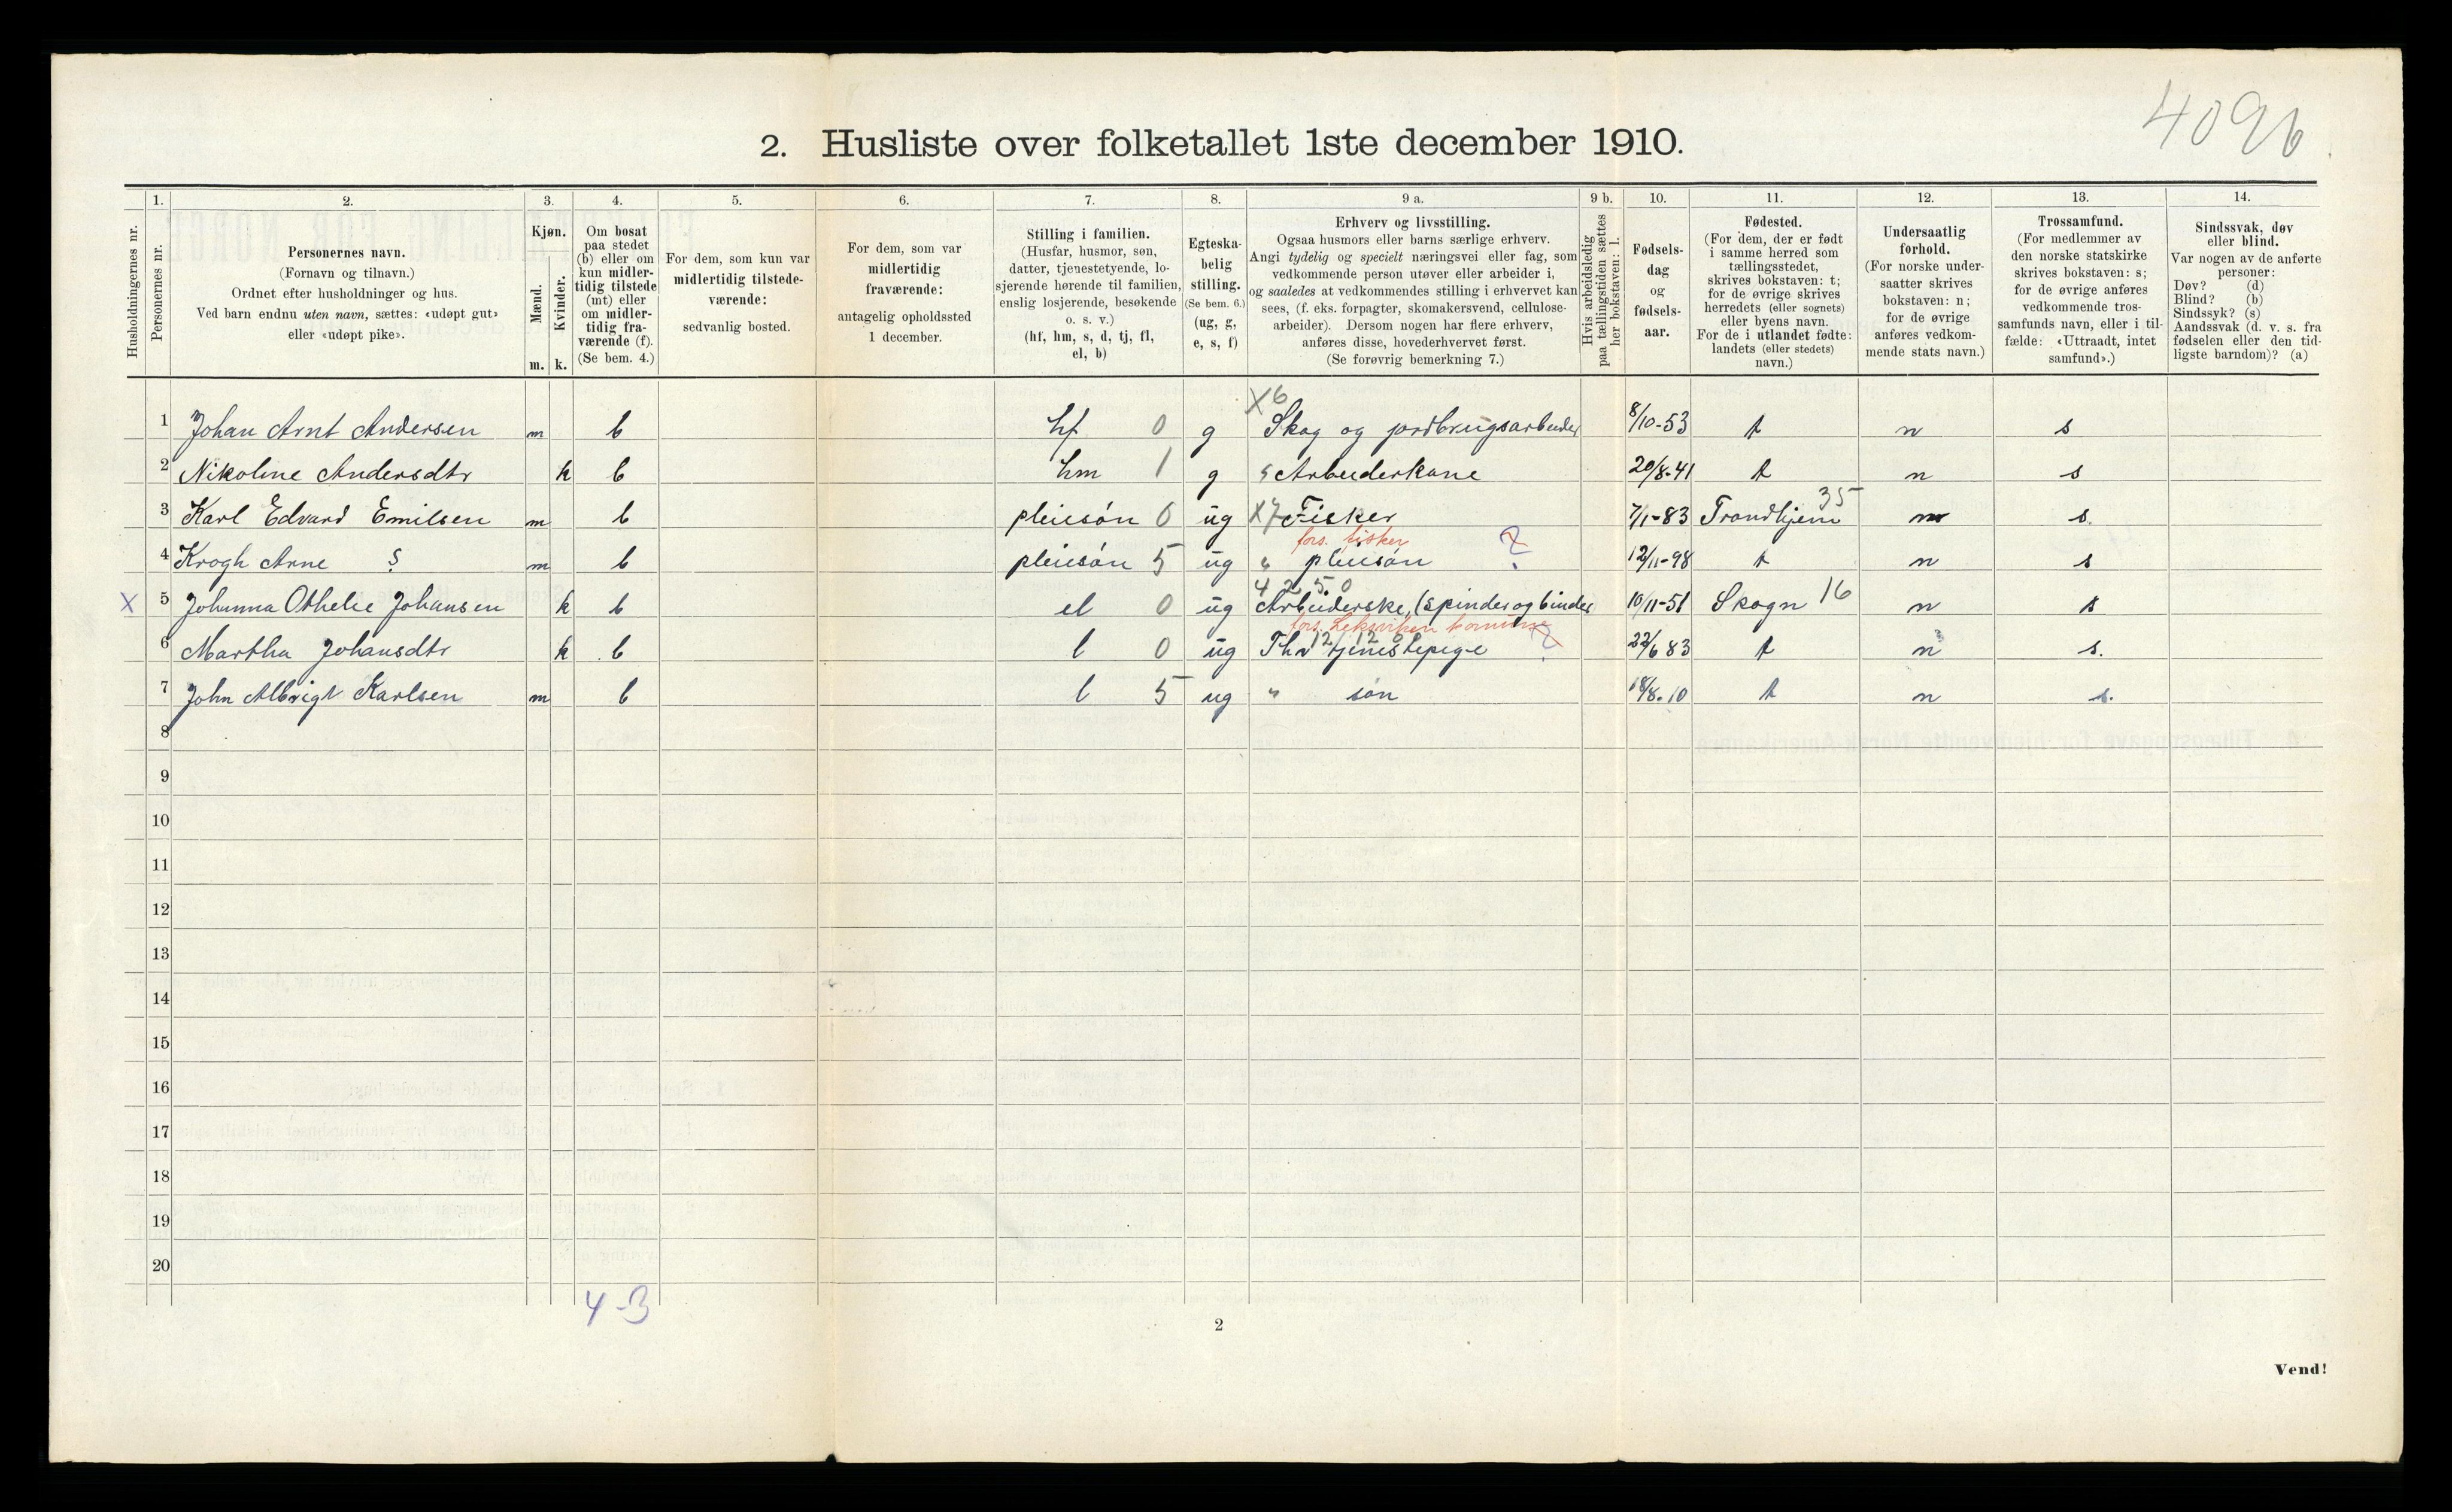 4096
2. Husliste over folketallet 1ste december 1910.
Husholdningernes nr.
1. Personernes nr.
2. Personernes navn.
(Fornavn og tilnavn.)
Ordnet efter husholdninger og hus.
Ved barn endnu uten navn, sættes: «udøpt gut»
eller «udøpt pike».
3. Kjøn.
Mænd. Kvinder.
m. k.
4. Om bosat
paa stedet
(b) eller om
kun midler-
tidig tilstede
(mt) eller
om midler-
tidig fra-
værende (f).
(Se bem. 4.)
5. For dem, som kun var
midlertidig tilstede-
værende:
sedvanlig bosted.
6. For dem, som var
midlertidig
fraværende:
antagelig opholdssted
1 december.
7. Stilling i familien.
(Husfar, husmor, søn,
datter, tjenestetyende, lo-
sjerende hørende til familien,
enslig losjerende, besøkende
o. s. v.)
(hf, hm, s, d, tj, fl,
el, b)
8. Egteska-
belig
stilling.
(Se bem. 6.)
(ug, g,
e, s, f)
9 a. Erhverv og livsstilling.
Ogsaa husmors eller barns særlige erhverv.
Angi tydelig og specielt næringsvei eller fag, som
vedkommende person utøver eller arbeider i,
og saaledes at vedkommendes stilling i erhvervet kan
sees, (f. eks. forpagter, skomakersvend, cellulose-
arbeider). Dersom nogen har flere erhverv,
anføres disse, hovederhvervet først.
(Se forøvrig bemerkning 7.)
9 b. Hvis arbeidsledig
paa tællingstiden sættes
her bokstaven: l.
10. Fødsels-
dag
og
fødsels-
aar.
11. Fødested.
(For dem, der er født
i samme herred som
tællingsstedet,
skrives bokstaven: t;
for de øvrige skrives
herredets (eller sognets)
eller byens navn.
For de i utlandet fødte:
landets (eller stedets)
navn.)
12. Undersaatlig
forhold.
(For norske under-
saatter skrives
bokstaven: n;
for de øvrige
anføres vedkom-
mende stats navn.)
13. Trossamfund.
(For medlemmer av
den norske statskirke
skrives bokstaven: s;
for de øvrige anføres
vedkommende tros-
samfunds navn, eller i til-
fælde: «Uttraadt, intet
samfund».)
14. Sindssvak, døv
eller blind.
Var nogen av de anførte
personer:
Døv? (d)
Blind? (b)
Sindssyk? (s)
Aandssvak (d. v. s. fra
fødselen eller den tid-
ligste barndom)? (a)
X6
1 Johan Arnt Andersen m b hf 0 g Skog og jordbrugsarbeider 8/10-53 t n s
2 Nikoline Andersdtr k b hm 1 g " Arbeiderkone 20/8-41 t n s
3 Karl Edvard Emilsen m b pleiesön 0 ug X7 Fisker 7/1-83 Trondhjem 35 n s.
fors. fisker
4 Krogh Arne ? m b pleiesön 5 ug " pleiesön ? 12/11-98 t n s
4250
X 5 Johanna Othelie Johansen k b el 0 ug Arbeiderske, (spinder og binder 10/11-51 Skogn 16 n s
fors. Leksviken komune
6 Martha Johansdtr k b l 0 ug tjenestepige ? 22/6 83 t n s.
7 John Albrigt Karlsen m b l 5 ug " sön 18/8.10 t n s.
8
9
10
11
12
13
14
15
16
17
18
19
20
4-3
2
Vend!